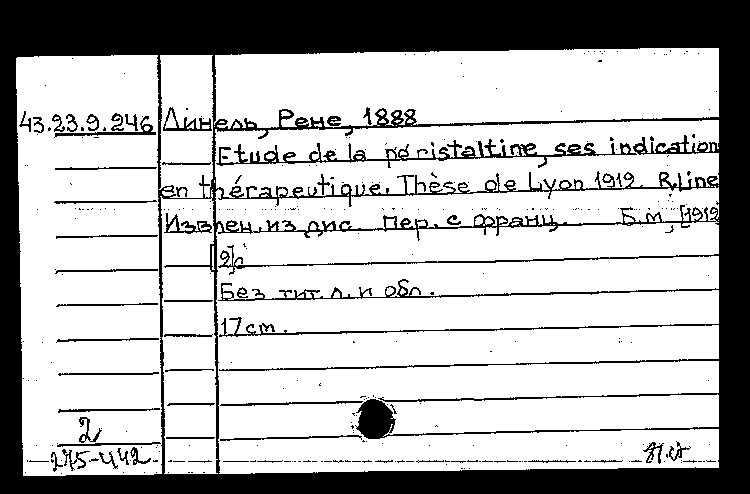 43.23.9.246 Линель, Рене, 1888
Etude de la peristaltine, ses indication
en thérapeutique. Thèse de Lyon 1919. R, Line
Извлеч. из дис. Пер. с франц. Б.м, [1919
[2]с
Без тит. л. и обл.
17 cm.
2
275-442